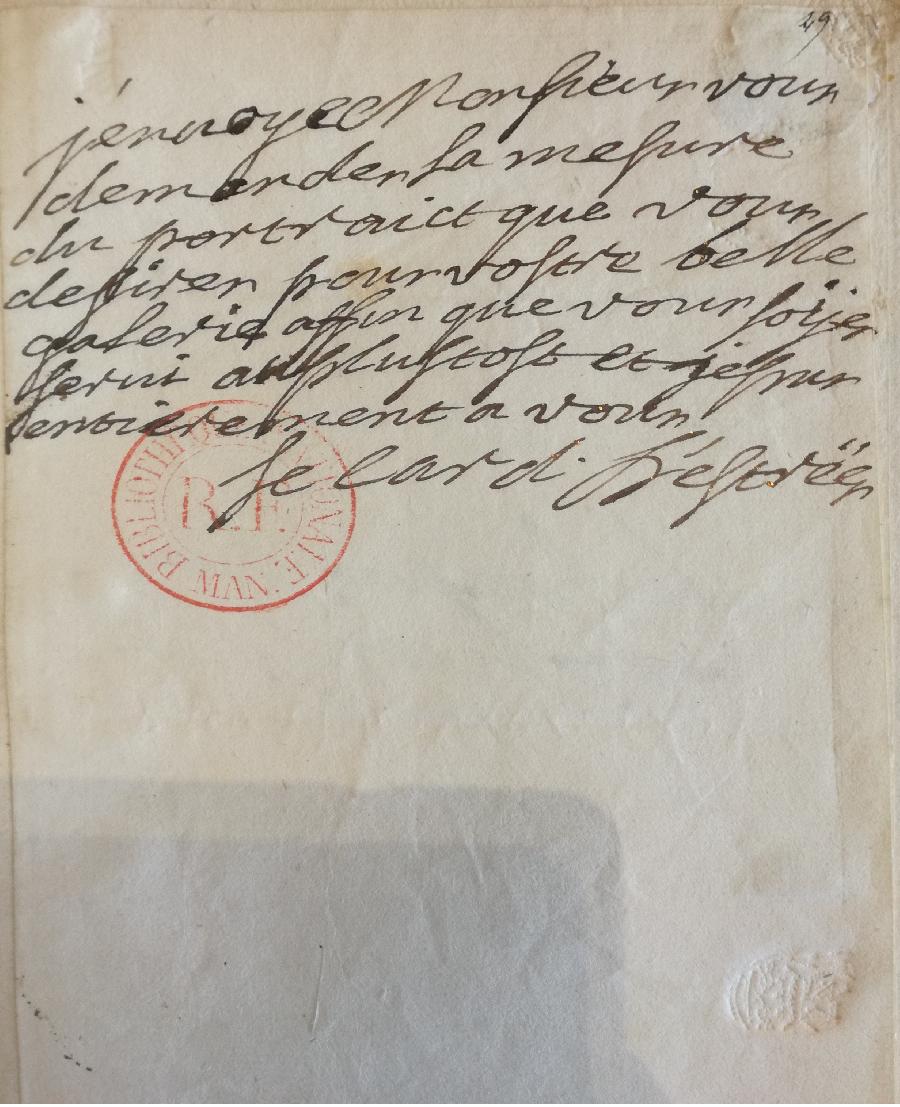 49
j'enuoyee Monsieur vous
demander la mesure
du portraict que vous
desirez pour vostre belle
galerie affin que vous soÿez
serui au plustost et je suis
entierement a vous
le card. d'estréës
BIBLIOTHEQUE NATIONALE MAN
R.F.